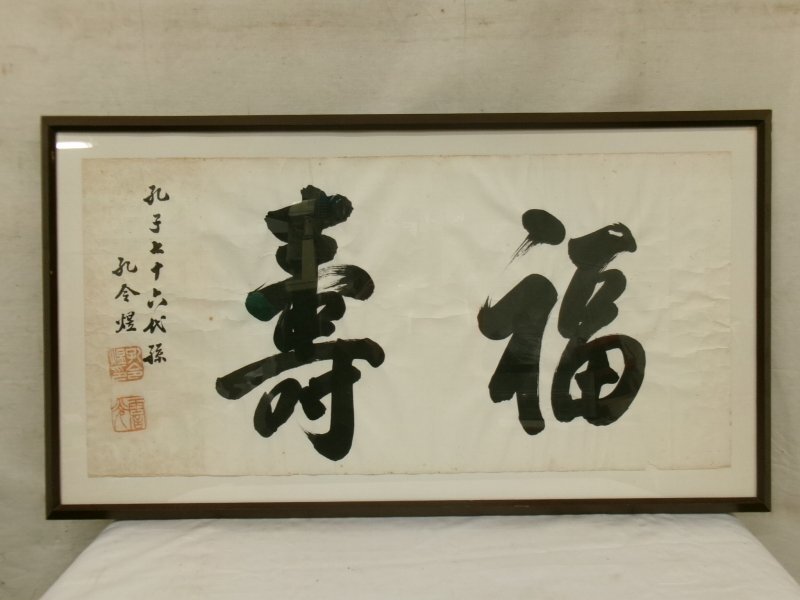 福壽
孔子七十六代孫
孔令煜